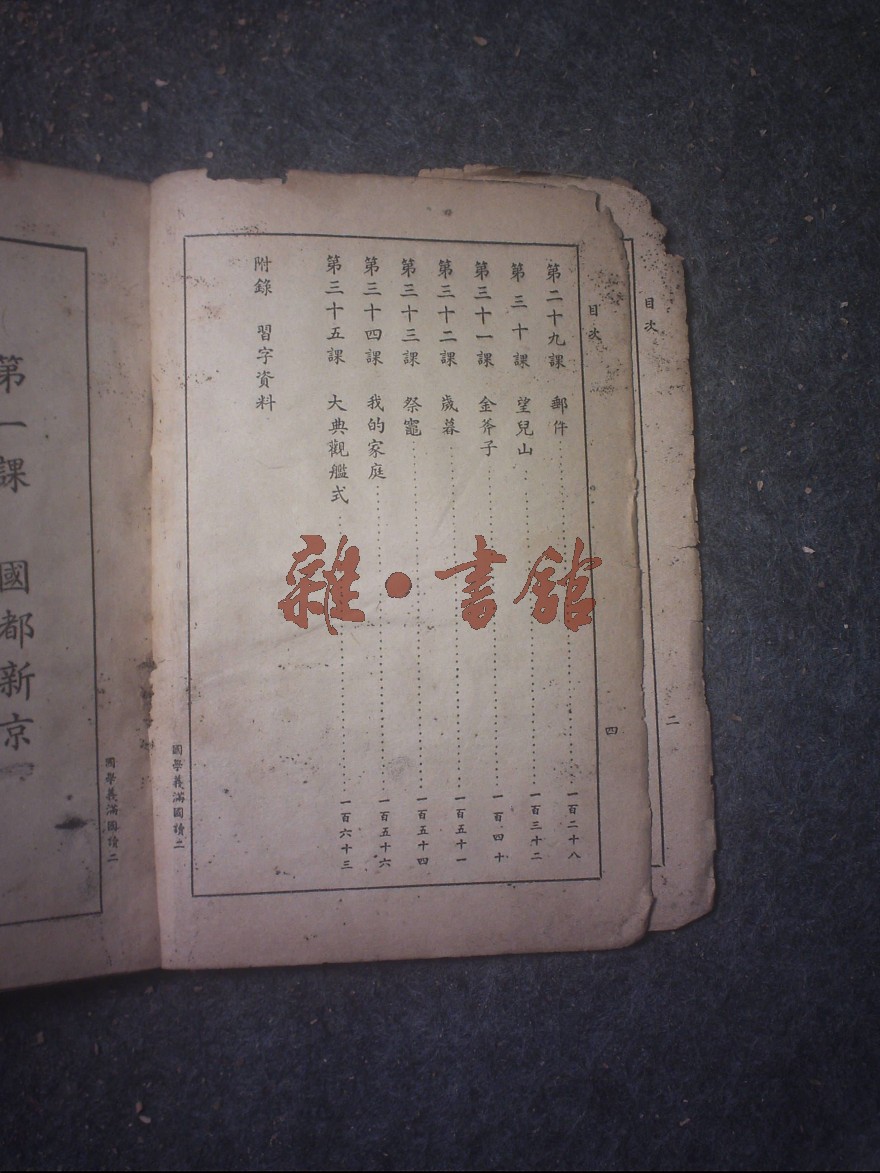 目次
二
目次
四
第二十九課 郵件 一百二十八
第三十課 望兒山 一百三十二
第三十一課 金斧子 一百四十
第三十二課 歲暮 一百五十一
第三十三課 祭竈 一百五十四
第三十四課 我的家庭 一百五十六
第三十五課 大典觀艦式 一百六十三
附錄 習字資料
國學義滿國讀二
雜·書館
第一課 國都新京
國學義滿國讀二